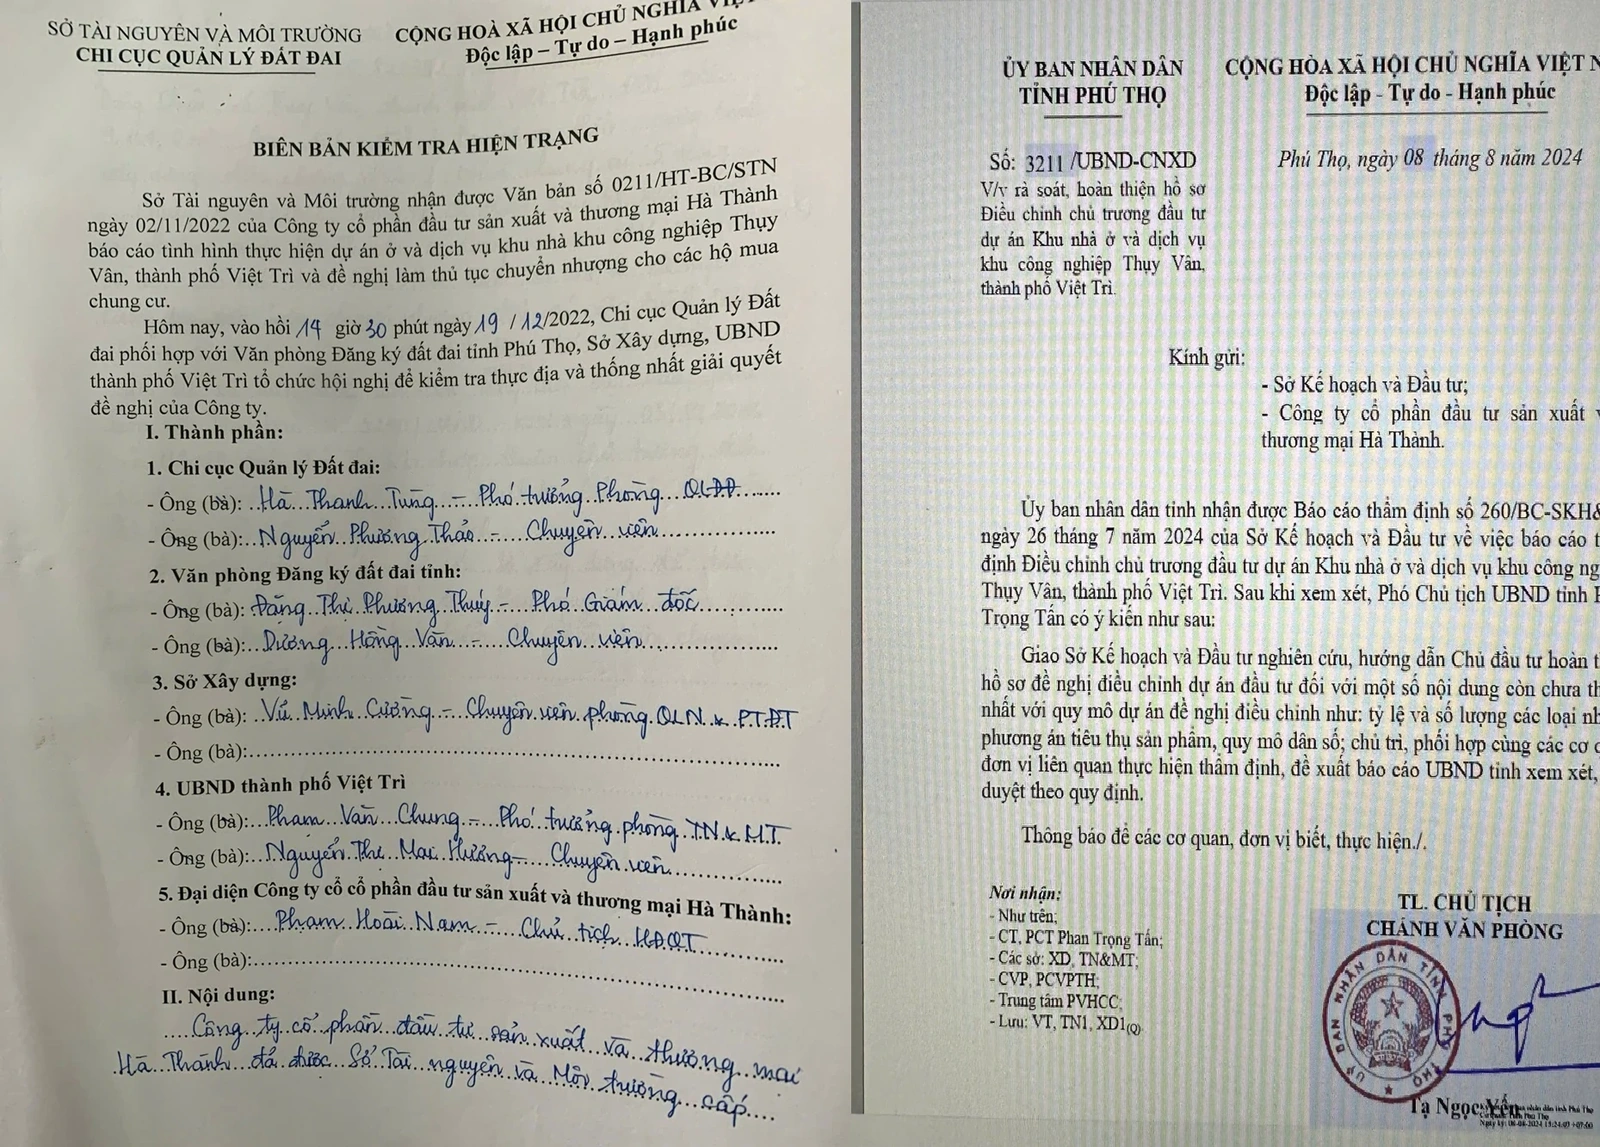 SỞ TÀI NGUYÊN VÀ MÔI TRƯỜNG
CHI CỤC QUẢN LÝ ĐẤT ĐAI
CỘNG HOÀ XÃ HỘI CHỦ NGHĨA
Độc lập – Tự do – Hạnh phúc
BIÊN BẢN KIỂM TRA HIỆN TRẠNG
Sở Tài nguyên và Môi trường nhận được Văn bản số 0211/HT-BC/STN
ngày 02/11/2022 của Công ty cổ phần đầu tư sản xuất và thương mại Hà Thành
báo cáo tình hình thực hiện dự án ở và dịch vụ khu nhà khu công nghiệp Thụy
Vân, thành phố Việt Trì và đề nghị làm thủ tục chuyển nhượng cho các hộ mua
chung cư.
Hôm nay, vào hồi 14 giờ 30 phút ngày 19 / 12/2022, Chi cục Quản lý Đất
đai phối hợp với Văn phòng Đăng ký đất đai tỉnh Phú Thọ, Sở Xây dựng, UBND
thành phố Việt Trì tổ chức hội nghị để kiểm tra thực địa và thống nhất giải quyết
đề nghị của Công ty.
I. Thành phần:
1. Chi cục Quản lý Đất đai:
- Ông (bà): Hà Thanh Tùng - Phó trưởng Phòng QLĐĐ
- Ông (bà): Nguyễn Phương Thảo - Chuyên viên
2. Văn phòng Đăng ký đất đai tỉnh:
- Ông (bà): Đặng Thị Phương Thúy - Phó Giám đốc
- Ông (bà): Dương Hồng Vân - Chuyên viên
3. Sở Xây dựng:
- Ông (bà): Vũ Minh Cường - Chuyên viên phòng QLN & PTĐT
- Ông (bà):
4. UBND thành phố Việt Trì
- Ông (bà): Phạm Văn Chung - Phó trưởng phòng TN & MT
- Ông (bà): Nguyễn Thị Mai Hương - Chuyên viên
5. Đại diện Công ty cổ cổ phần đầu tư sản xuất và thương mại Hà Thành:
- Ông (bà): Phạm Hoài Nam - Chủ tịch HĐQT
- Ông (bà):
II. Nội dung:
Công ty cổ phần đầu tư sản xuất và thương mại
Hà Thành đã được Sở Tài nguyên và Môi trường cấp
ỦY BAN NHÂN DÂN
TỈNH PHÚ THỌ
CỘNG HÒA XÃ HỘI CHỦ NGHĨA VIỆT N
Độc lập - Tự do - Hạnh phúc
Số: 3211 /UBND-CNXD
Phú Thọ, ngày 08 tháng 8 năm 2024
V/v rà soát, hoàn thiện hồ sơ
Điều chỉnh chủ trương đầu tư
dự án Khu nhà ở và dịch vụ
khu công nghiệp Thụy Vân,
thành phố Việt Trì.
Kính gửi:
- Sở Kế hoạch và Đầu tư;
- Công ty cổ phần đầu tư sản xuất v
thương mại Hà Thành.
Ủy ban nhân dân tỉnh nhận được Báo cáo thẩm định số 260/BC-SKH&
ngày 26 tháng 7 năm 2024 của Sở Kế hoạch và Đầu tư về việc báo cáo t
định Điều chỉnh chủ trương đầu tư dự án Khu nhà ở và dịch vụ khu công ng
Thụy Vân, thành phố Việt Trì. Sau khi xem xét, Phó Chủ tịch UBND tỉnh
Trọng Tấn có ý kiến như sau:
Giao Sở Kế hoạch và Đầu tư nghiên cứu, hướng dẫn Chủ đầu tư hoàn t
hồ sơ đề nghị điều chỉnh dự án đầu tư đối với một số nội dung còn chưa th
nhất với quy mô dự án đề nghị điều chỉnh như: tỷ lệ và số lượng các loại nh
phương án tiêu thụ sản phẩm, quy mô dân số; chủ trì, phối hợp cùng các cơ q
đơn vị liên quan thực hiện thẩm định, đề xuất báo cáo UBND tỉnh xem xét,
duyệt theo quy định.
Thông báo để các cơ quan, đơn vị biết, thực hiện./.
Nơi nhận:
- Như trên;
- CT, PCT Phan Trọng Tấn;
- Các sở: XD, TN&MT;
- CVP, PCVPTH;
- Trung tâm PVHCC;
- Lưu: VT, TN1, XD1(Q)
TL. CHỦ TỊCH
CHÁNH VĂN PHÒNG
ỦY BAN NHÂN DÂN TỈNH PHÚ THỌ
Tạ Ngọc Yến